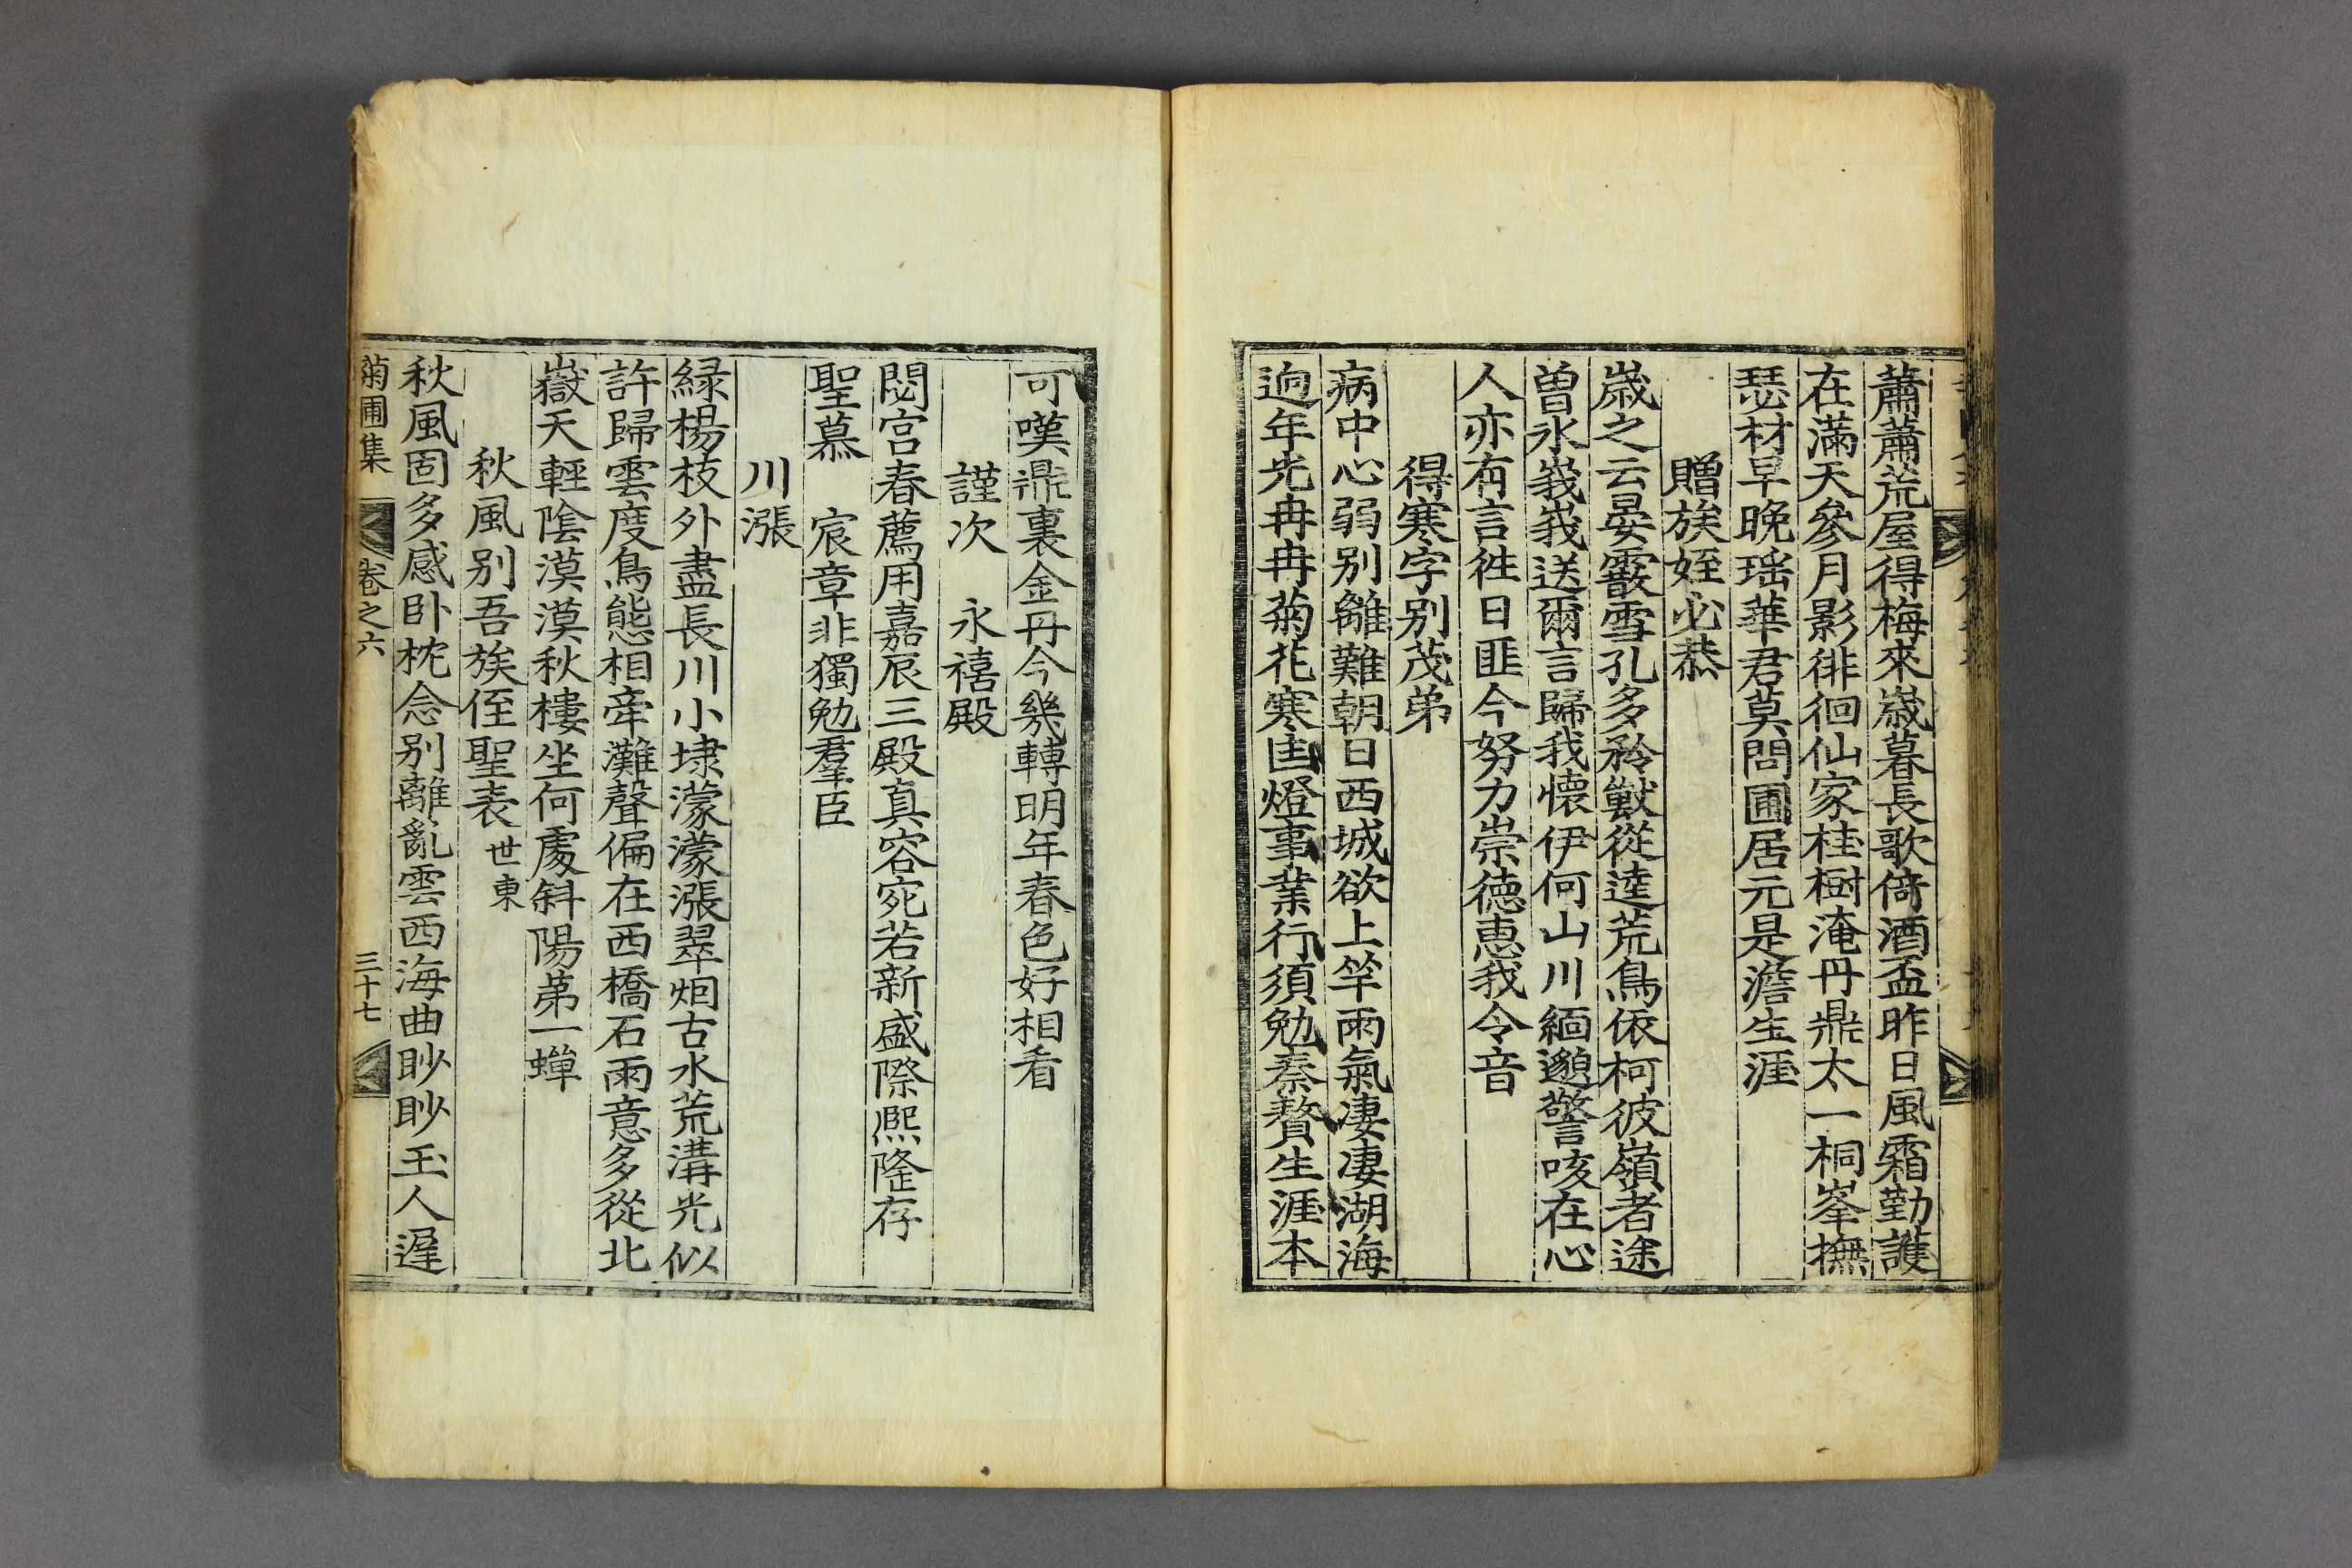 蕭蕭荒屋得梅來歲暮長歌倚酒盃昨日風霜勤護
在滿天參月影徘徊仙家桂樹淹丹鼎太一桐峯撫
瑟材早晚瑶華君莫問圃居元是澹生涯
贈族姪必恭
歲之云晏霰雪孔多矜獸從逵荒鳥依柯彼嶺者途
曽氷峩峩送爾言歸我懷伊何山川緬邈謦咳在心
人亦有言徃日匪今努力崇德惠我令音
得寒字别茂弟
病中心弱别離難朝日西城欲上竿雨氣凄凄湖海
逈年光冉冉菊花寒 燈事業行須勉秦贅生涯本
可嘆鼎裏金丹今幾轉明年春色好相看
謹次 永禧殿
閟宮春薦用嘉辰三殿真容宛若新盛際熙隆存
聖慕 宸章非獨勉羣臣
川漲
緑楊枝外盡長川小埭濛濛漲翠烟古水荒溝光似
許歸雲度鳥態相牽灘聲偏在西橋石雨意多從北
嶽天輕陰漠漠秋樓坐何處斜陽苐一蟬
秋風别吾族侄聖表世東
秋風固多感卧枕念别離亂雲西海曲眇眇玉人遲
菊圃集 卷之六 三十七